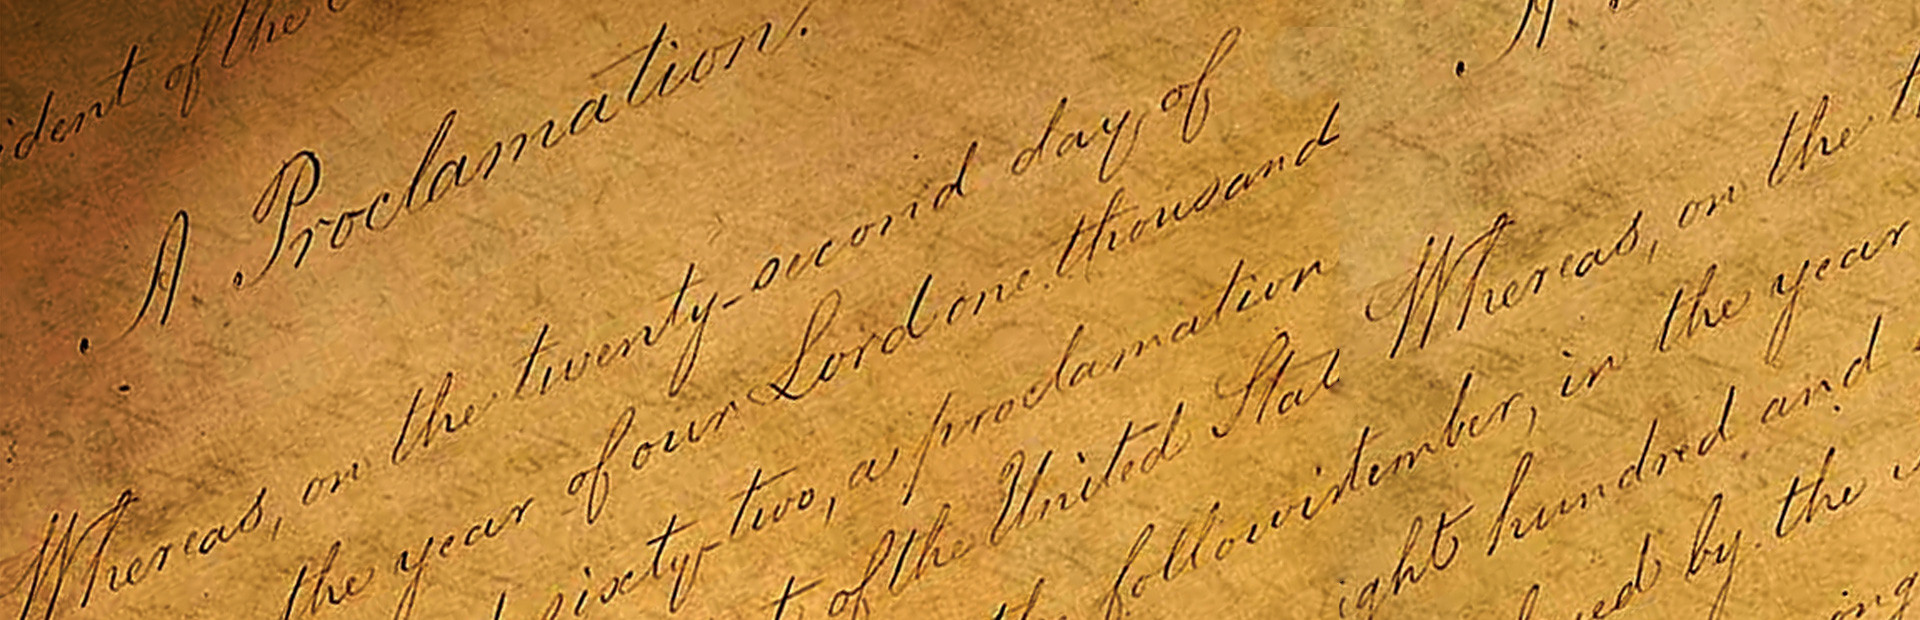 ident of the
A Proclamation.
Whereas, on the twenty-second day of
the year of our Lord one thousand
sixty two, a proclamation
of the United Stat
the following
A
Whereas, on the
tember, in the year
ight hundred and
by the